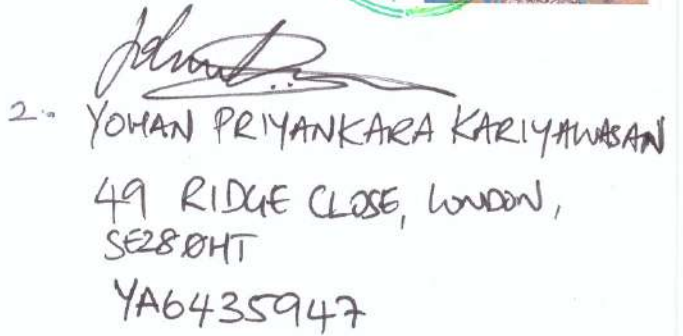 2.. YOHAN PRIYANKARA KARIYAWASAN
49 RIDGE CLOSE, LONDON,
SE28 0HT
YA6435947